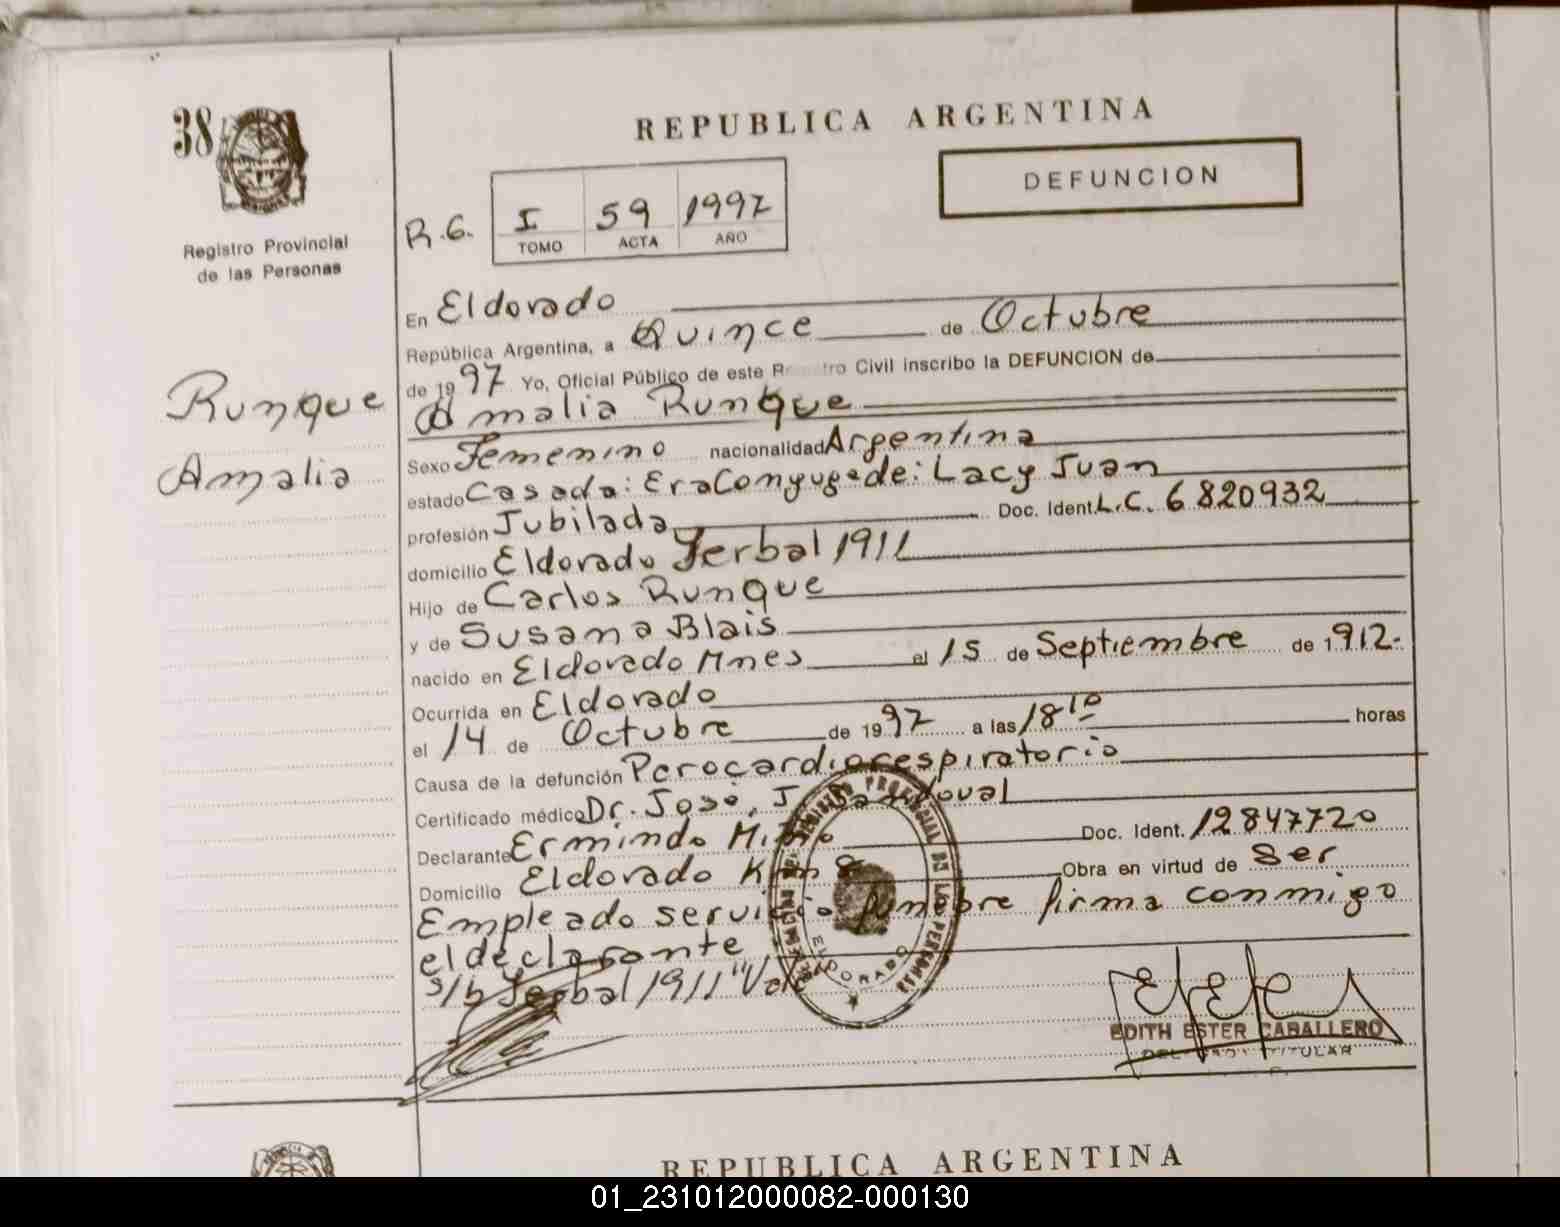 38
REPUBLICA ARGENTINA
DEFUNCION
R.G. I 59 1997
TOMO ACTA AÑO
Registro Provincial
de las Personas
En Eldorado
República Argentina, a Quince de Octubre
de 1997 Yo, Oficial Público de este Registro Civil inscribo la DEFUNCION de
Runque
Amalia
Amalia Runque
Sexo Femenino nacionalidad Argentina
estado Casada: Era Conyuge de: Lacy Juan
profesión Jubilada Doc. Ident. L.C. 6820932
domicilio Eldorado Yerbal 1911
Hijo de Carlos Runque
y de Susana Blais
nacido en Eldorado Mnes el 15 de Septiembre de 1912-
Ocurrida en Eldorado
el 14 de Octubre de 1997 a las 18 10 horas
Causa de la defunción Parocardiorespiratorio
Certificado médico Dr. José, J. Sandoval
Declarante Ermindo Doc. Ident. 12847720
Domicilio Eldorado Km 8 Obra en virtud de Ser
Empleado servicio funebre firma conmigo
el declarante
s/b Yerbal 1911 "Vale"
REGISTRO PROVINCIAL DE LAS PERSONAS
ELDORADO
EDITH ESTER CABALLERO
TITULAR
REPUBLICA ARGENTINA
01_231012000082-000130